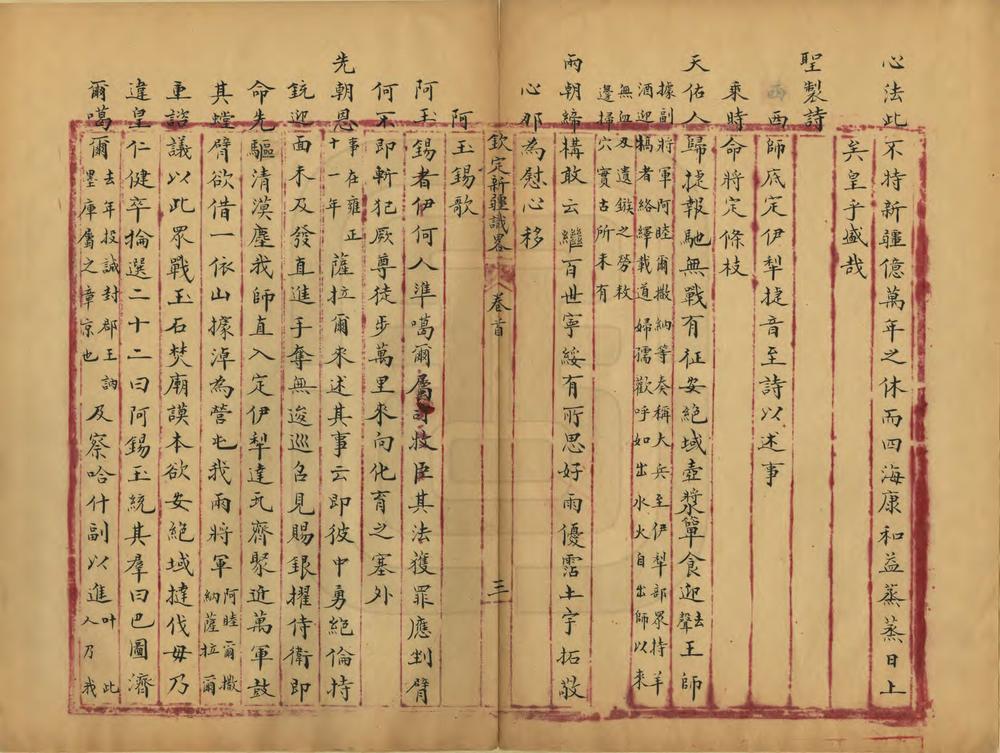 心法此不特新疆億萬年之休而四海康和益蒸蒸日上
矣皇乎盛哉
聖製詩
西師底定伊犁捷音至詩以述事
乘時命將定條枝
天佑人歸捷報馳無戰有征安絕域壺漿簞食迎去聲王師
據副將軍阿睦爾撒納等奏稱大兵至伊犁部眾持羊
酒迎犒者絡繹載道婦孺歡呼如出水火自出師以來
無血刃遺鏃之勞敉
邊掃穴實古所未有
兩朝締構敢云繼百世寧綏有所思好雨優霑土宇拓敬
心那為慰心移
欽定新疆識畧 卷首 三
阿玉錫歌
阿玉錫者伊何人準噶爾屬司牧臣其法獲罪應剉臂
何不即斬犯厥尊徒步萬里來向化育之塞外
先朝恩事在雍正十一年薩拉爾來述其事云即彼中勇絕倫持
銃迎面未及發直進手奪無逡巡召見賜銀擢侍衛即
命先驅清漠塵我師直入定伊犁達瓦齊聚近萬軍鼓
其螳臂欲借一依山據淖為營屯我兩將軍阿睦爾撒納薩拉爾
重諮議以此眾戰玉石焚廟謨本欲安絕域撻伐毋乃
違皇仁健卒掄選二十二曰阿錫玉統其羣曰巴圖濟
爾噶爾去年投誠封郡王訥墨庫屬之章京也及察哈什副以進叶此人乃我